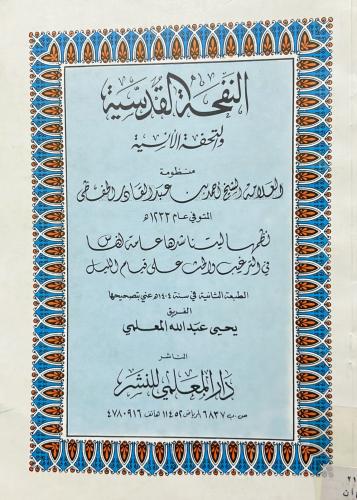 النفحة القدسية
والتحفة الأنسية
منظومة
العلامة الشيخ أحمد بن عبد القادر الحفظي
المتوفى عام ١٢٣٣هـ
نظمها ليتناشدها عامة الناس
في الترغيب والحث على قيام الليل
الطبعة الثانية في سنة ١٤٠٤هـ عني بتصحيحها
الفريق
يحيى عبد الله المعلمي
الناشر
دار المعلمي للنشر
ص.ب ٦٨٣٧ الرياض ١١٤٥٢ هاتف ٤٧٨٠٩١٦